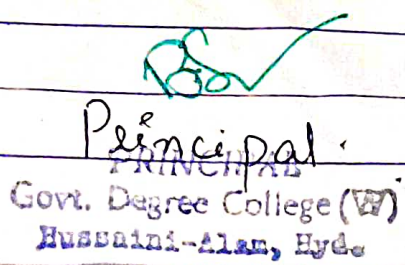 Principal.
PRINCIPAL
Govt. Degree College (W)
Hussaini-Alam, Hyd.